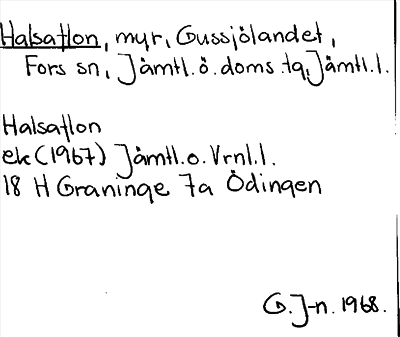 Halsaflon, myr, Gussjölandet,
Fors sn, Jämtl. ö. doms. tg, Jämtl. l.
Halsaflon
ek (1967) Jämtl. o. Vrnl. l.
18 H Graninge 7a Ödingen
G. J-n. 1968.